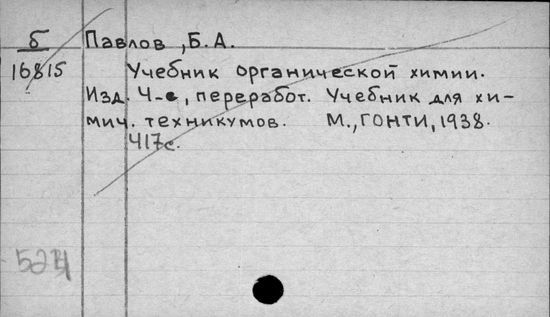 Б
16815
Павлов, Б.А.
Учебник органической химии.
Изд. 4-е, переработ. Учебник для хи-
мич. техникумов. М., ГОНТИ, 1938.
417с.